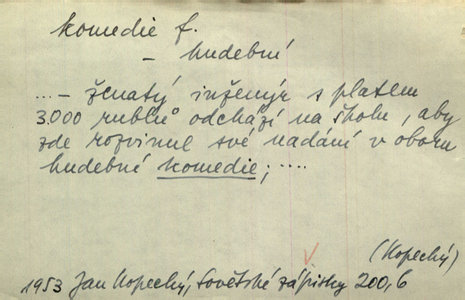 komedie f.
– hudební
...– ženatý inženýr s platem
3.000 rublů odchází na školu, aby
zde rozvinul své nadání v oboru
hudební komedie; ....
(Kopecký)
1953 Jan Kopecký, Sovětské zápisky 200,6